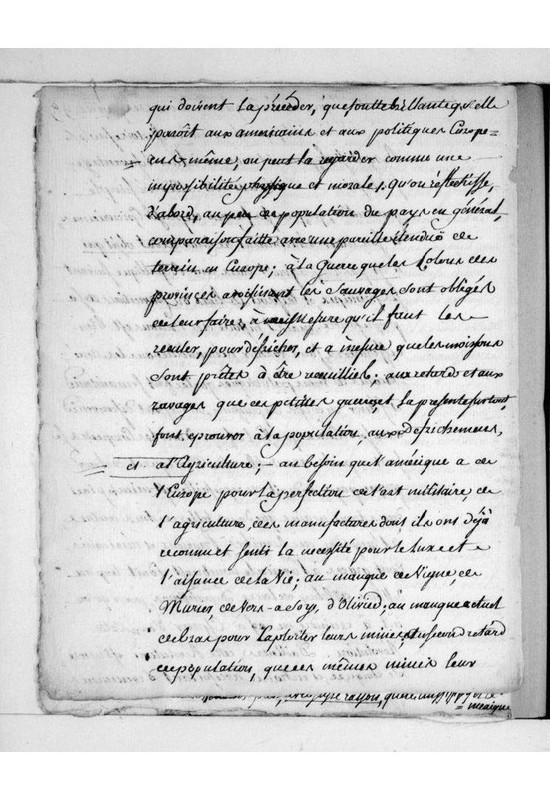 qui doivent la précéder, que toutte brillante qu'elle
paroît aux américains et aux politiques Europe=
ens même, on peut la regarder comme une
impossibilité physique et morale; qu'on réfléchisse,
d'abord, au peu de population du pays en général,
comparaison faitte avec une pareille étendue de
terrein en Europe; à la Guerre que les Colons des
provinces avoisinant les Sauvages sont obligés
de leur faire, à mesure qu'il faut les
reculer, pour défricher, et a mesure que les moissons
sont prêtes à être recueillies; aux retards et aux
ravages que ces petites guerres, et la présente surtout,
font eprouver à la population, aux défrichemens,
et a l'Agriculture; — au besoin que l'amérique a de
l'Europe pour la perfection de l'art militaire, de
l'agriculture, des manufactures dont ils ont déjà
reconnu et senti la necessité pour le Luxe et
l'aisance de la Vie; au manque de Vigne, de
Murier, de Vers-a-Soye, d'Olivier; au manque actuel
de bras pour Exploiter leurs mines, au second retard
de population, que ces mêmes mines leur
avec juste raison, que
= meaique